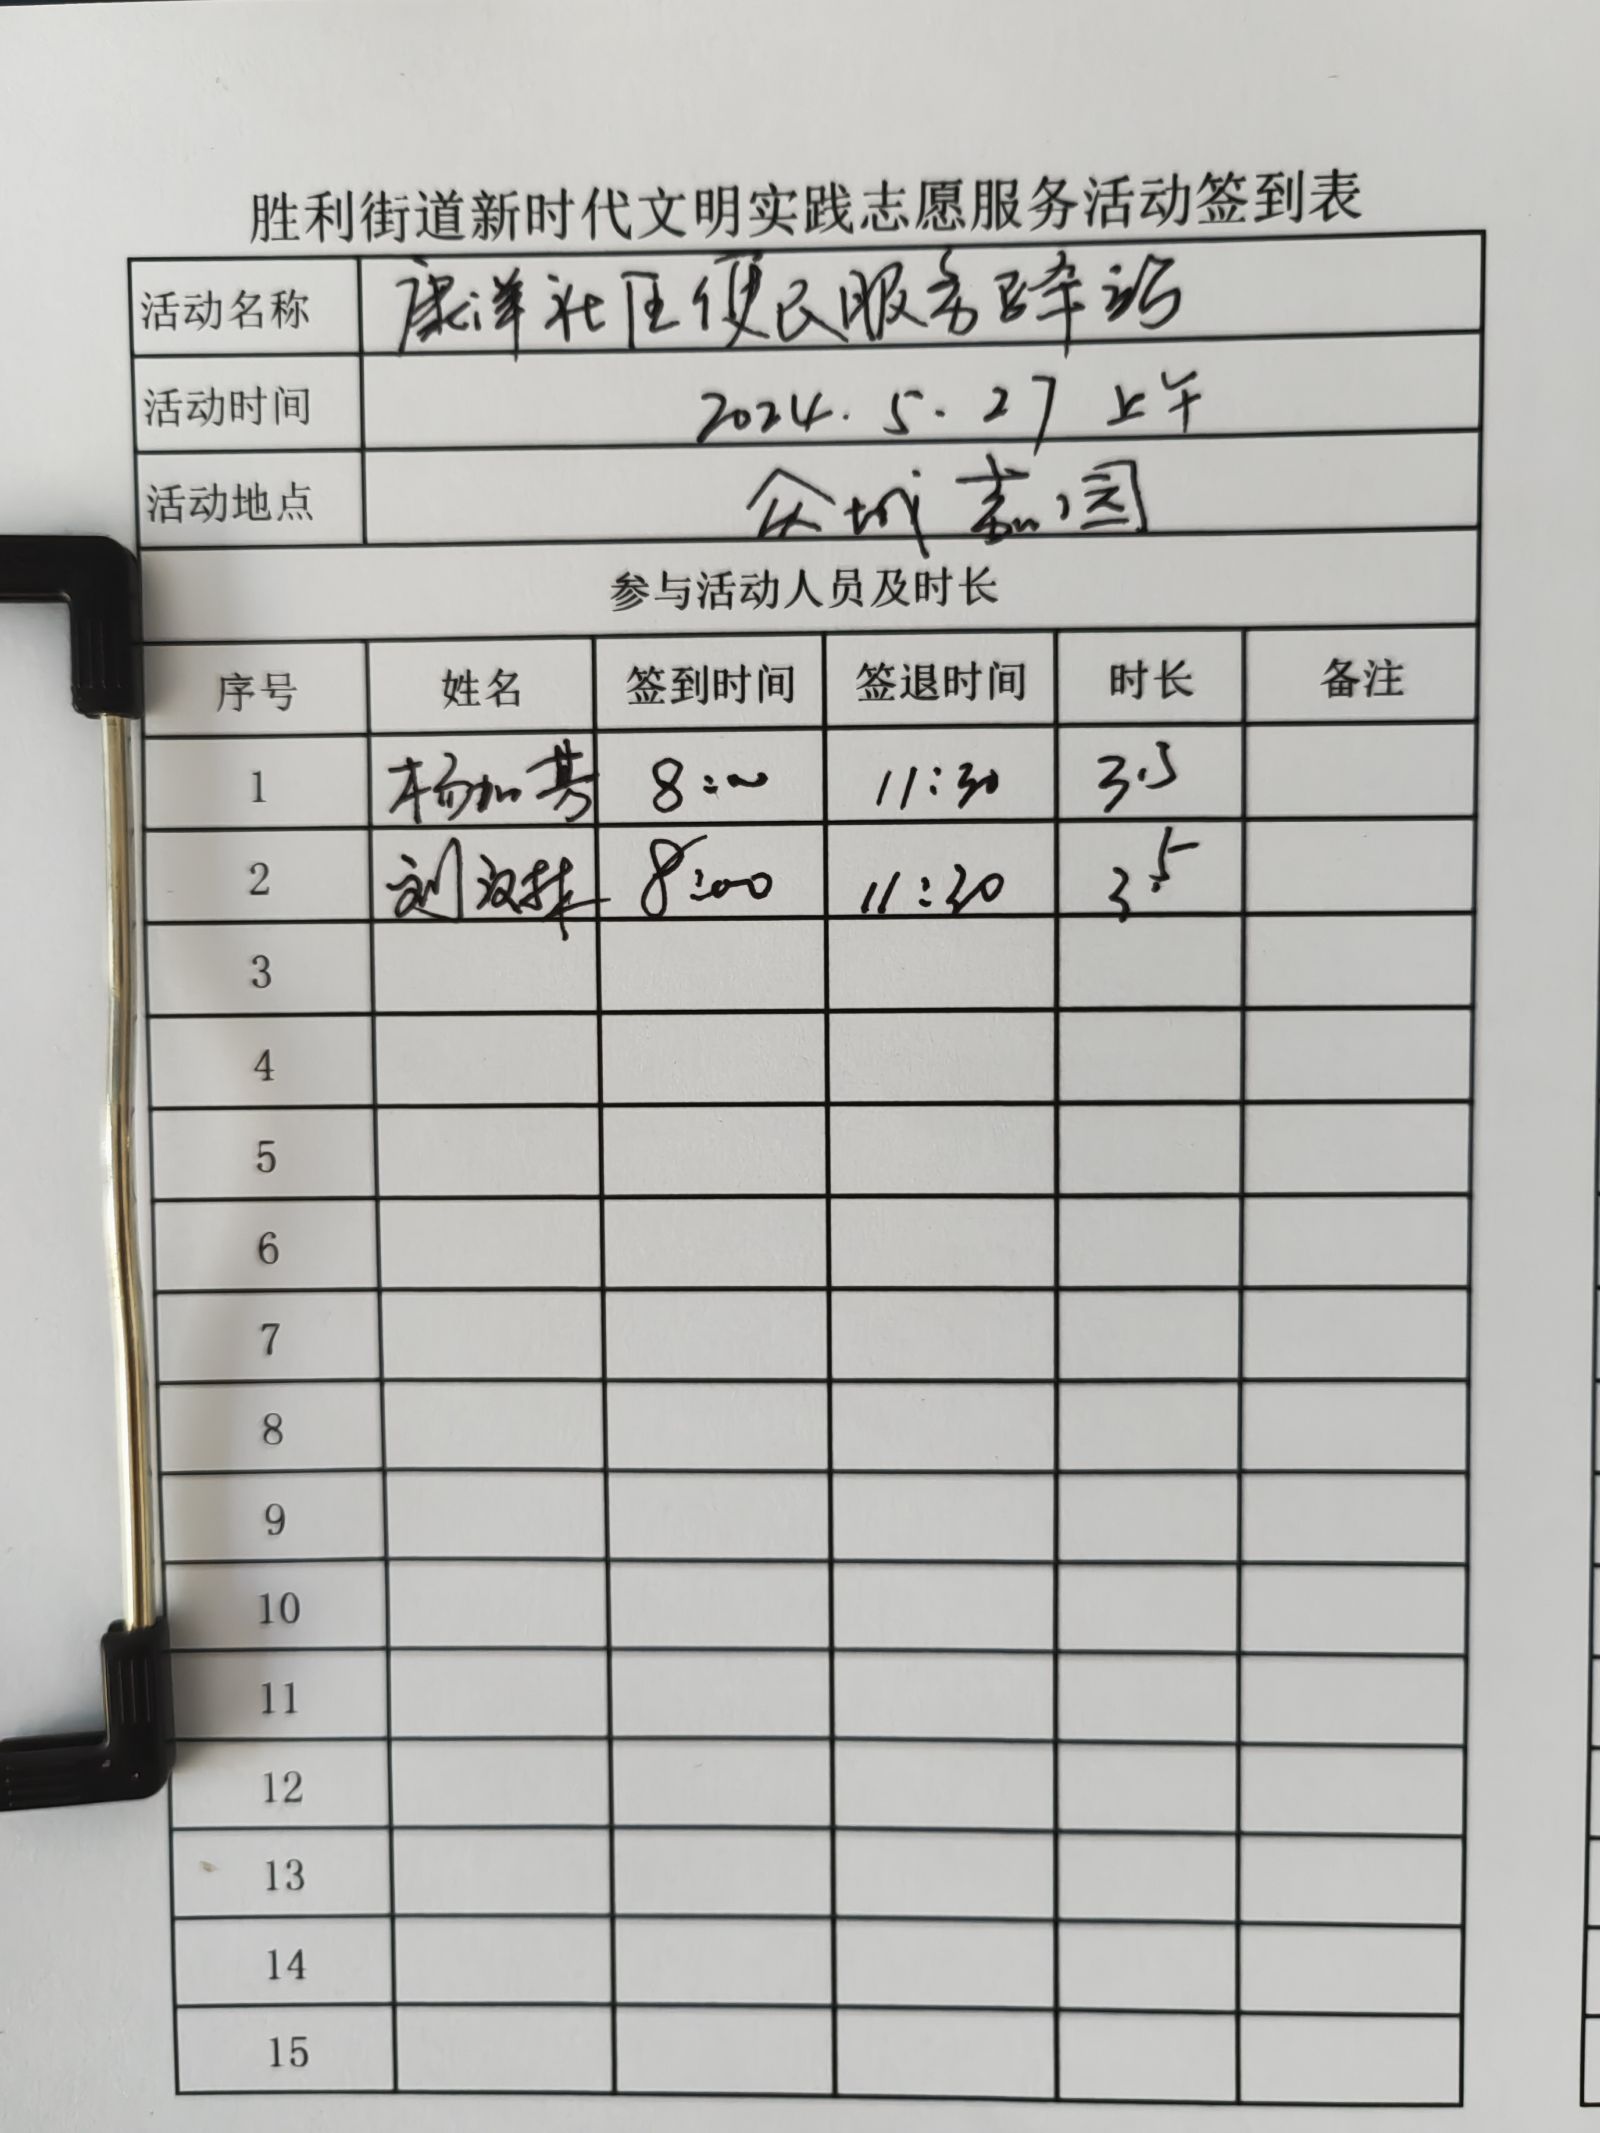 胜利街道新时代文明实践志愿服务活动签到表
活动名称 康洋社区便民服务驿站
活动时间 2024.5.27 上午
活动地点 众城嘉园
参与活动人员及时长
序号 姓名 签到时间 签退时间 时长 备注
1 杨加 8:00 11:30 3.5
2 刘汉 8:00 11:30 3.5
3
4
5
6
7
8
9
10
11
12
13
14
15